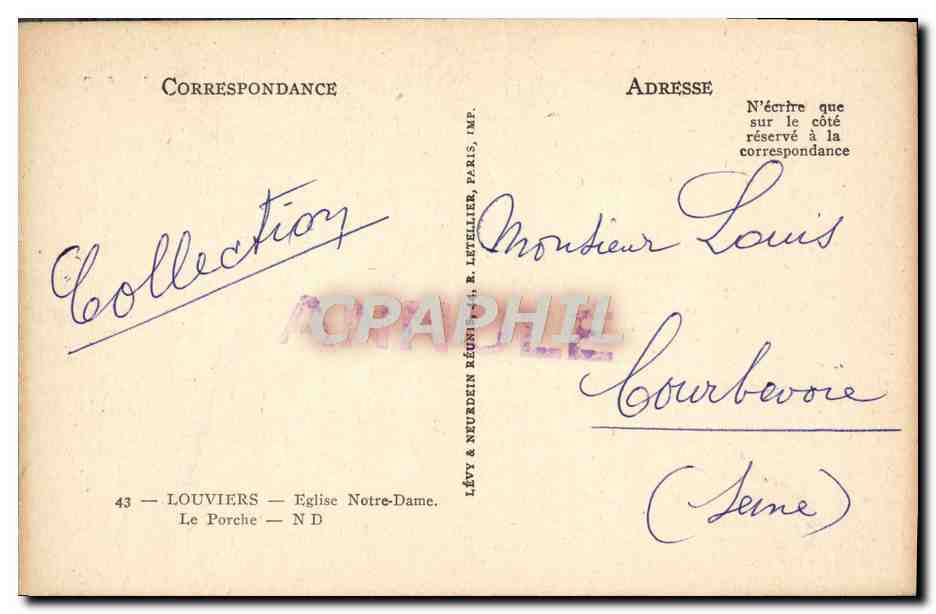 CORRESPONDANCE
ADRESSE
N'écrire que
sur le côté
réservé à la
correspondance
Collection
LÉVY & NEURDEIN RÉUNIS, 44, R. LETELLIER, PARIS, IMP.
Monsieur Louis
CPAPHIL
Courbevoie
(Seine)
43 — LOUVIERS — Eglise Notre-Dame.
Le Porche — N D